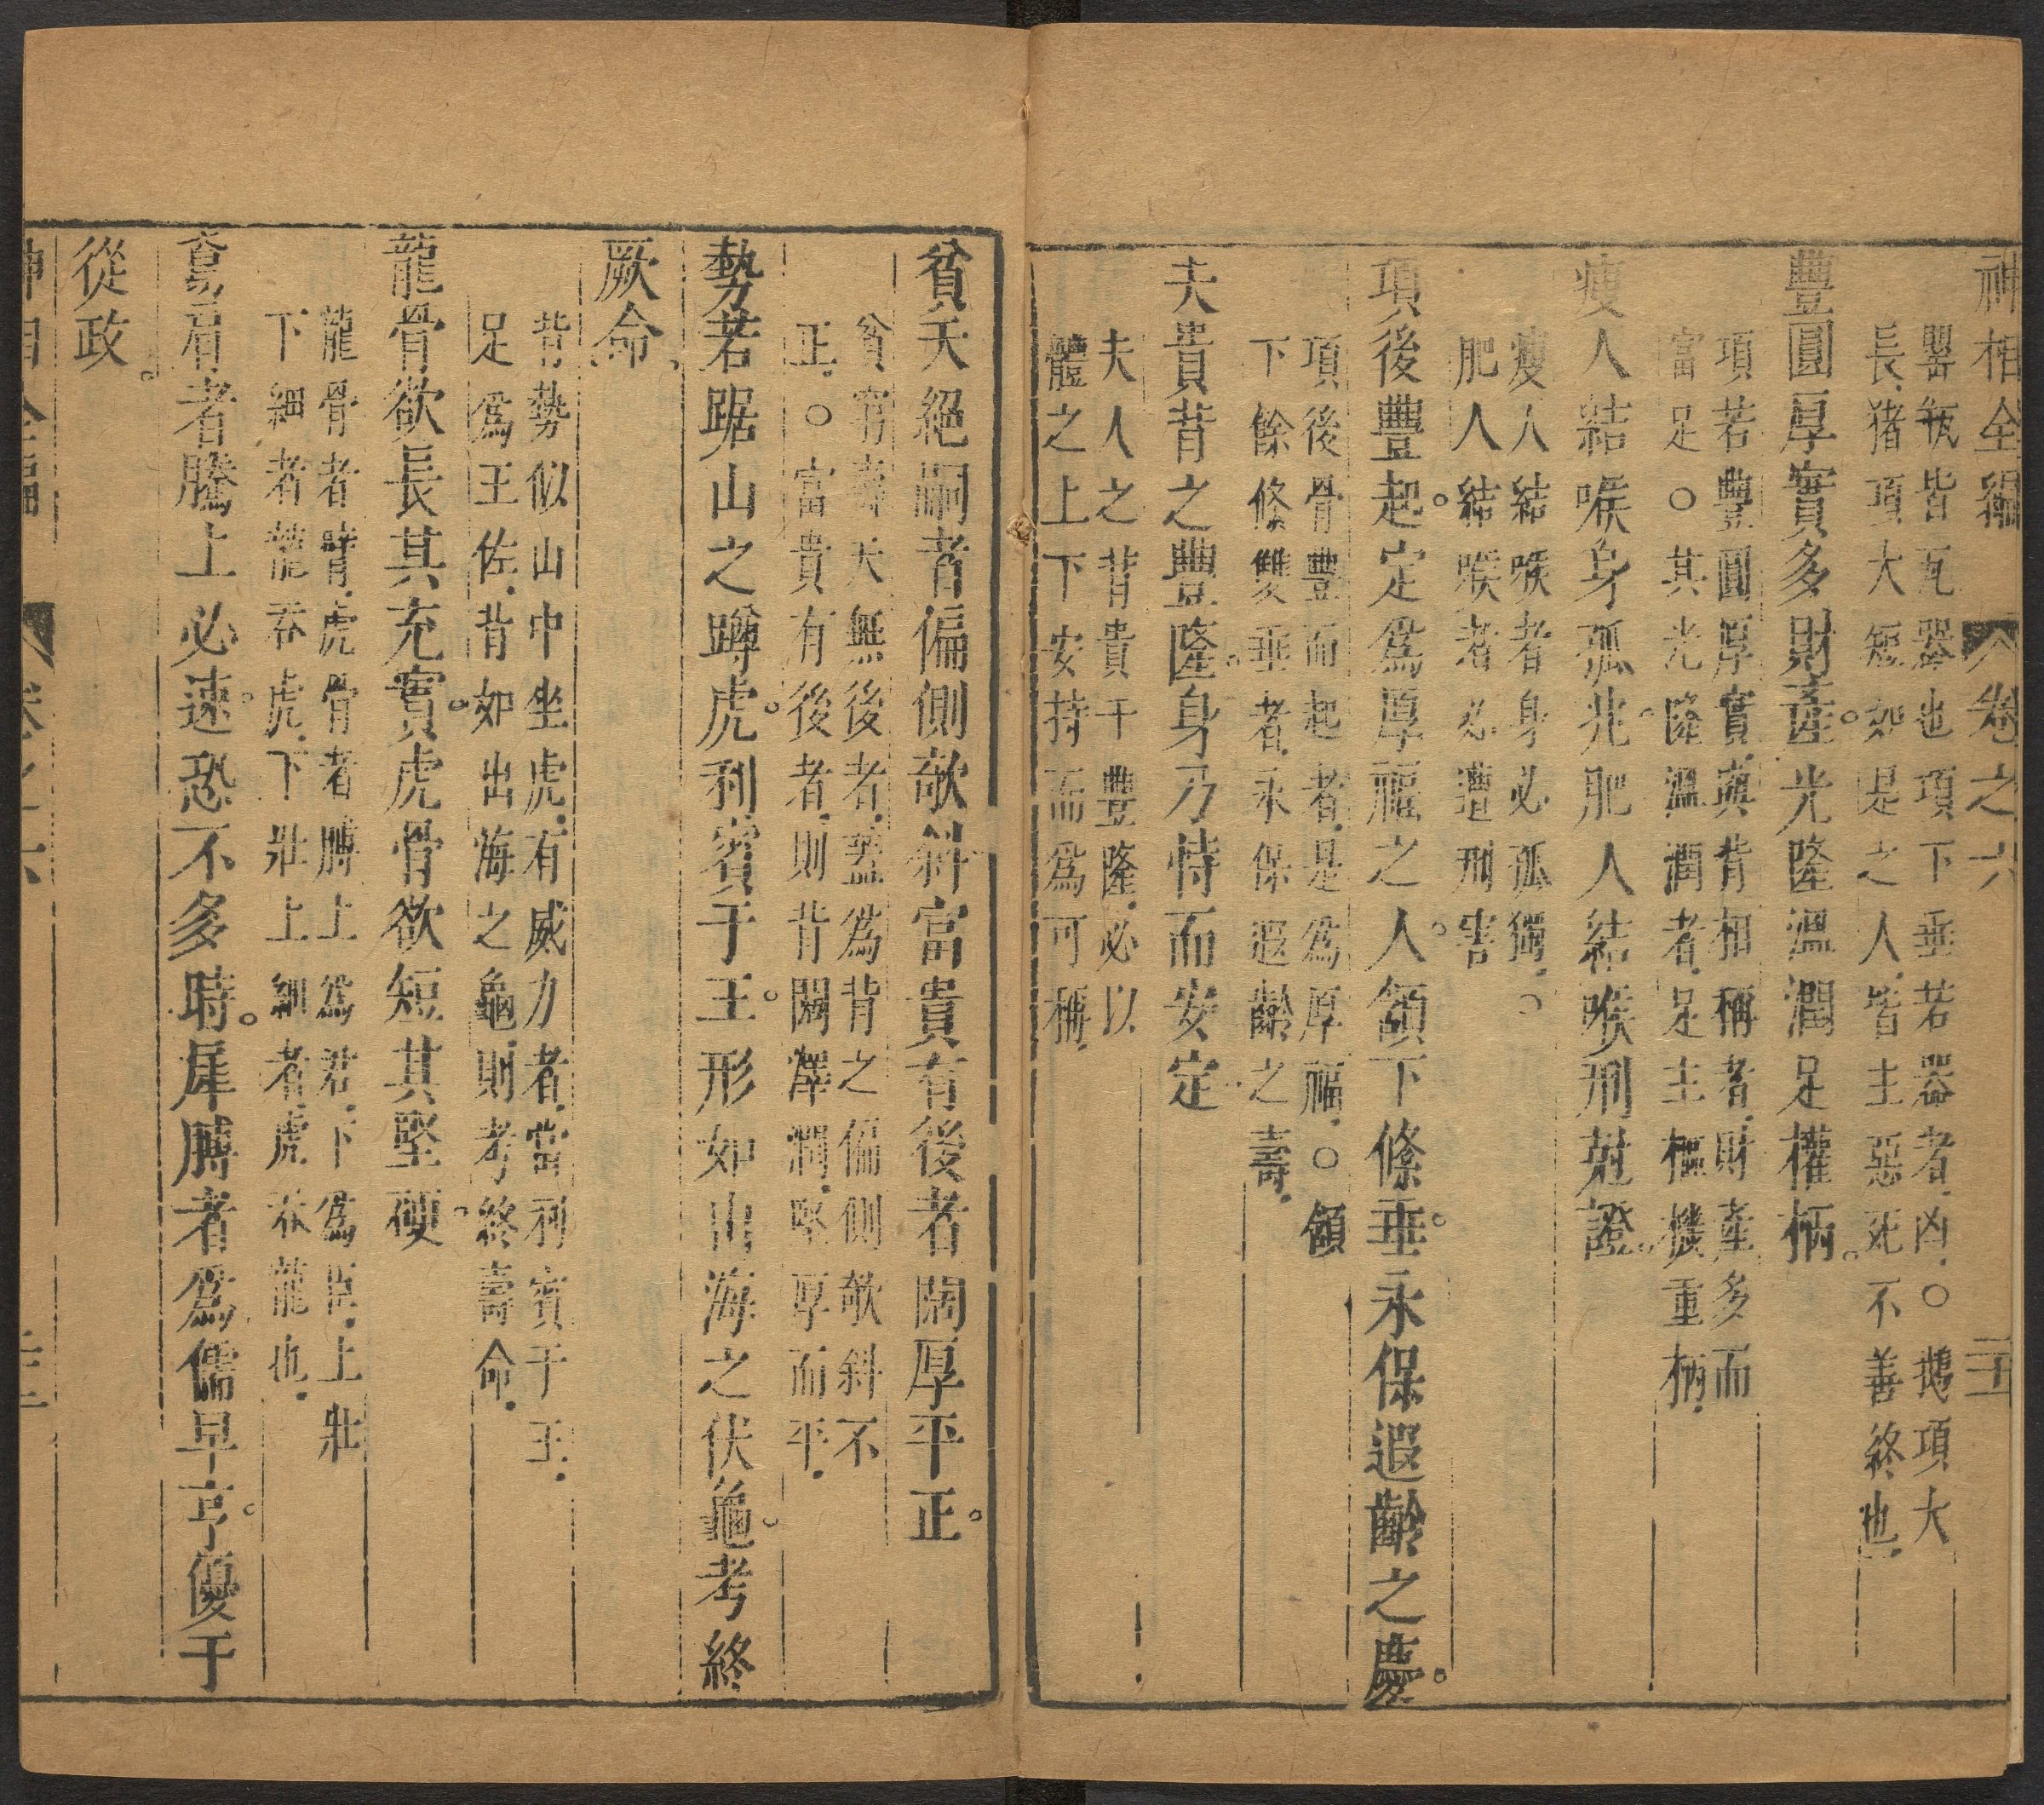 神相全編 卷之六 二十
罌瓶皆瓦器也項下垂若器者凶○鵝項大
長猪項大短如是之人皆主惡死不善終也
豐圓厚實多財產光隆溫潤足權柄
項若豐圓厚實與背相稱者財產多而
富足○其光隆溫潤者足主樞機重柄
瘦人結喉身孤兆肥人結喉刑尅證
瘦人結喉者身必孤獨○
肥人結喉者必遭刑害
項後豐起定爲厚福之人頷下絛垂永保遐齡之慶
項後骨豐而起者是爲厚福○頷
下餘絛雙垂者永保遐齡之壽
夫貴背之豐隆身乃恃而安定
夫人之背貴干豐隆必以
體之上下安持而爲可稱
貧夭絕嗣者偏側欹斜富貴有後者闊厚平正
貧窮壽夭無後者蓋爲背之偏側欹斜不
正○富貴有後者則背闊澤潤堅厚而平
勢若踞山之蹲虎利賓于王形如出海之伏龜考終
厥命
背勢似山中坐虎有威力者當利賓于王
足爲王佐背如出海之龜則考終壽命
龍骨欲長其充實虎骨欲短其堅硬
龍骨者臂虎骨者膊上爲君下爲臣上壯
下細者龍吞虎下壯上細者虎吞龍也
鳶肩者騰上必速恐不多時犀膊者爲儒早亨優于
從政